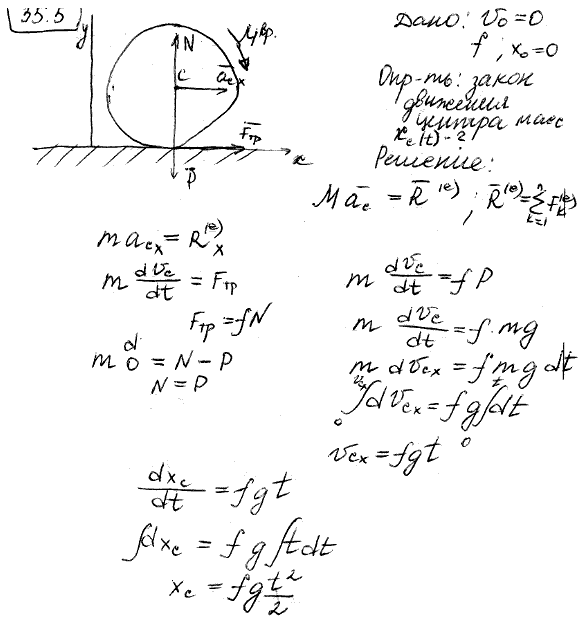 35.5
y
N
Mвр.
C
a̅cx
F̅тр
x
P̅
Дано: v₀=0
f ; x₀=0
Опр-ть: закон
движения
центра масс
xc(t)-?
Решение:
M a̅c = R̅⁽ᵉ⁾ ; R̅⁽ᵉ⁾=∑ₖ₌₁ⁿ F̅ₖ⁽ᵉ⁾
m acx = Rx⁽ᵉ⁾
m dvc/dt = Fтр
Fтр = fN
m 0 = N - P
N = P
m dvc/dt = f P
m dvc/dt = f · mg
m dvcx = f m g dt
∫₀^vx dvcx = f g ∫₀^t dt
vcx = fgt
dxc/dt = fgt
∫dxc = f g ∫t dt
xc = fg t²/2